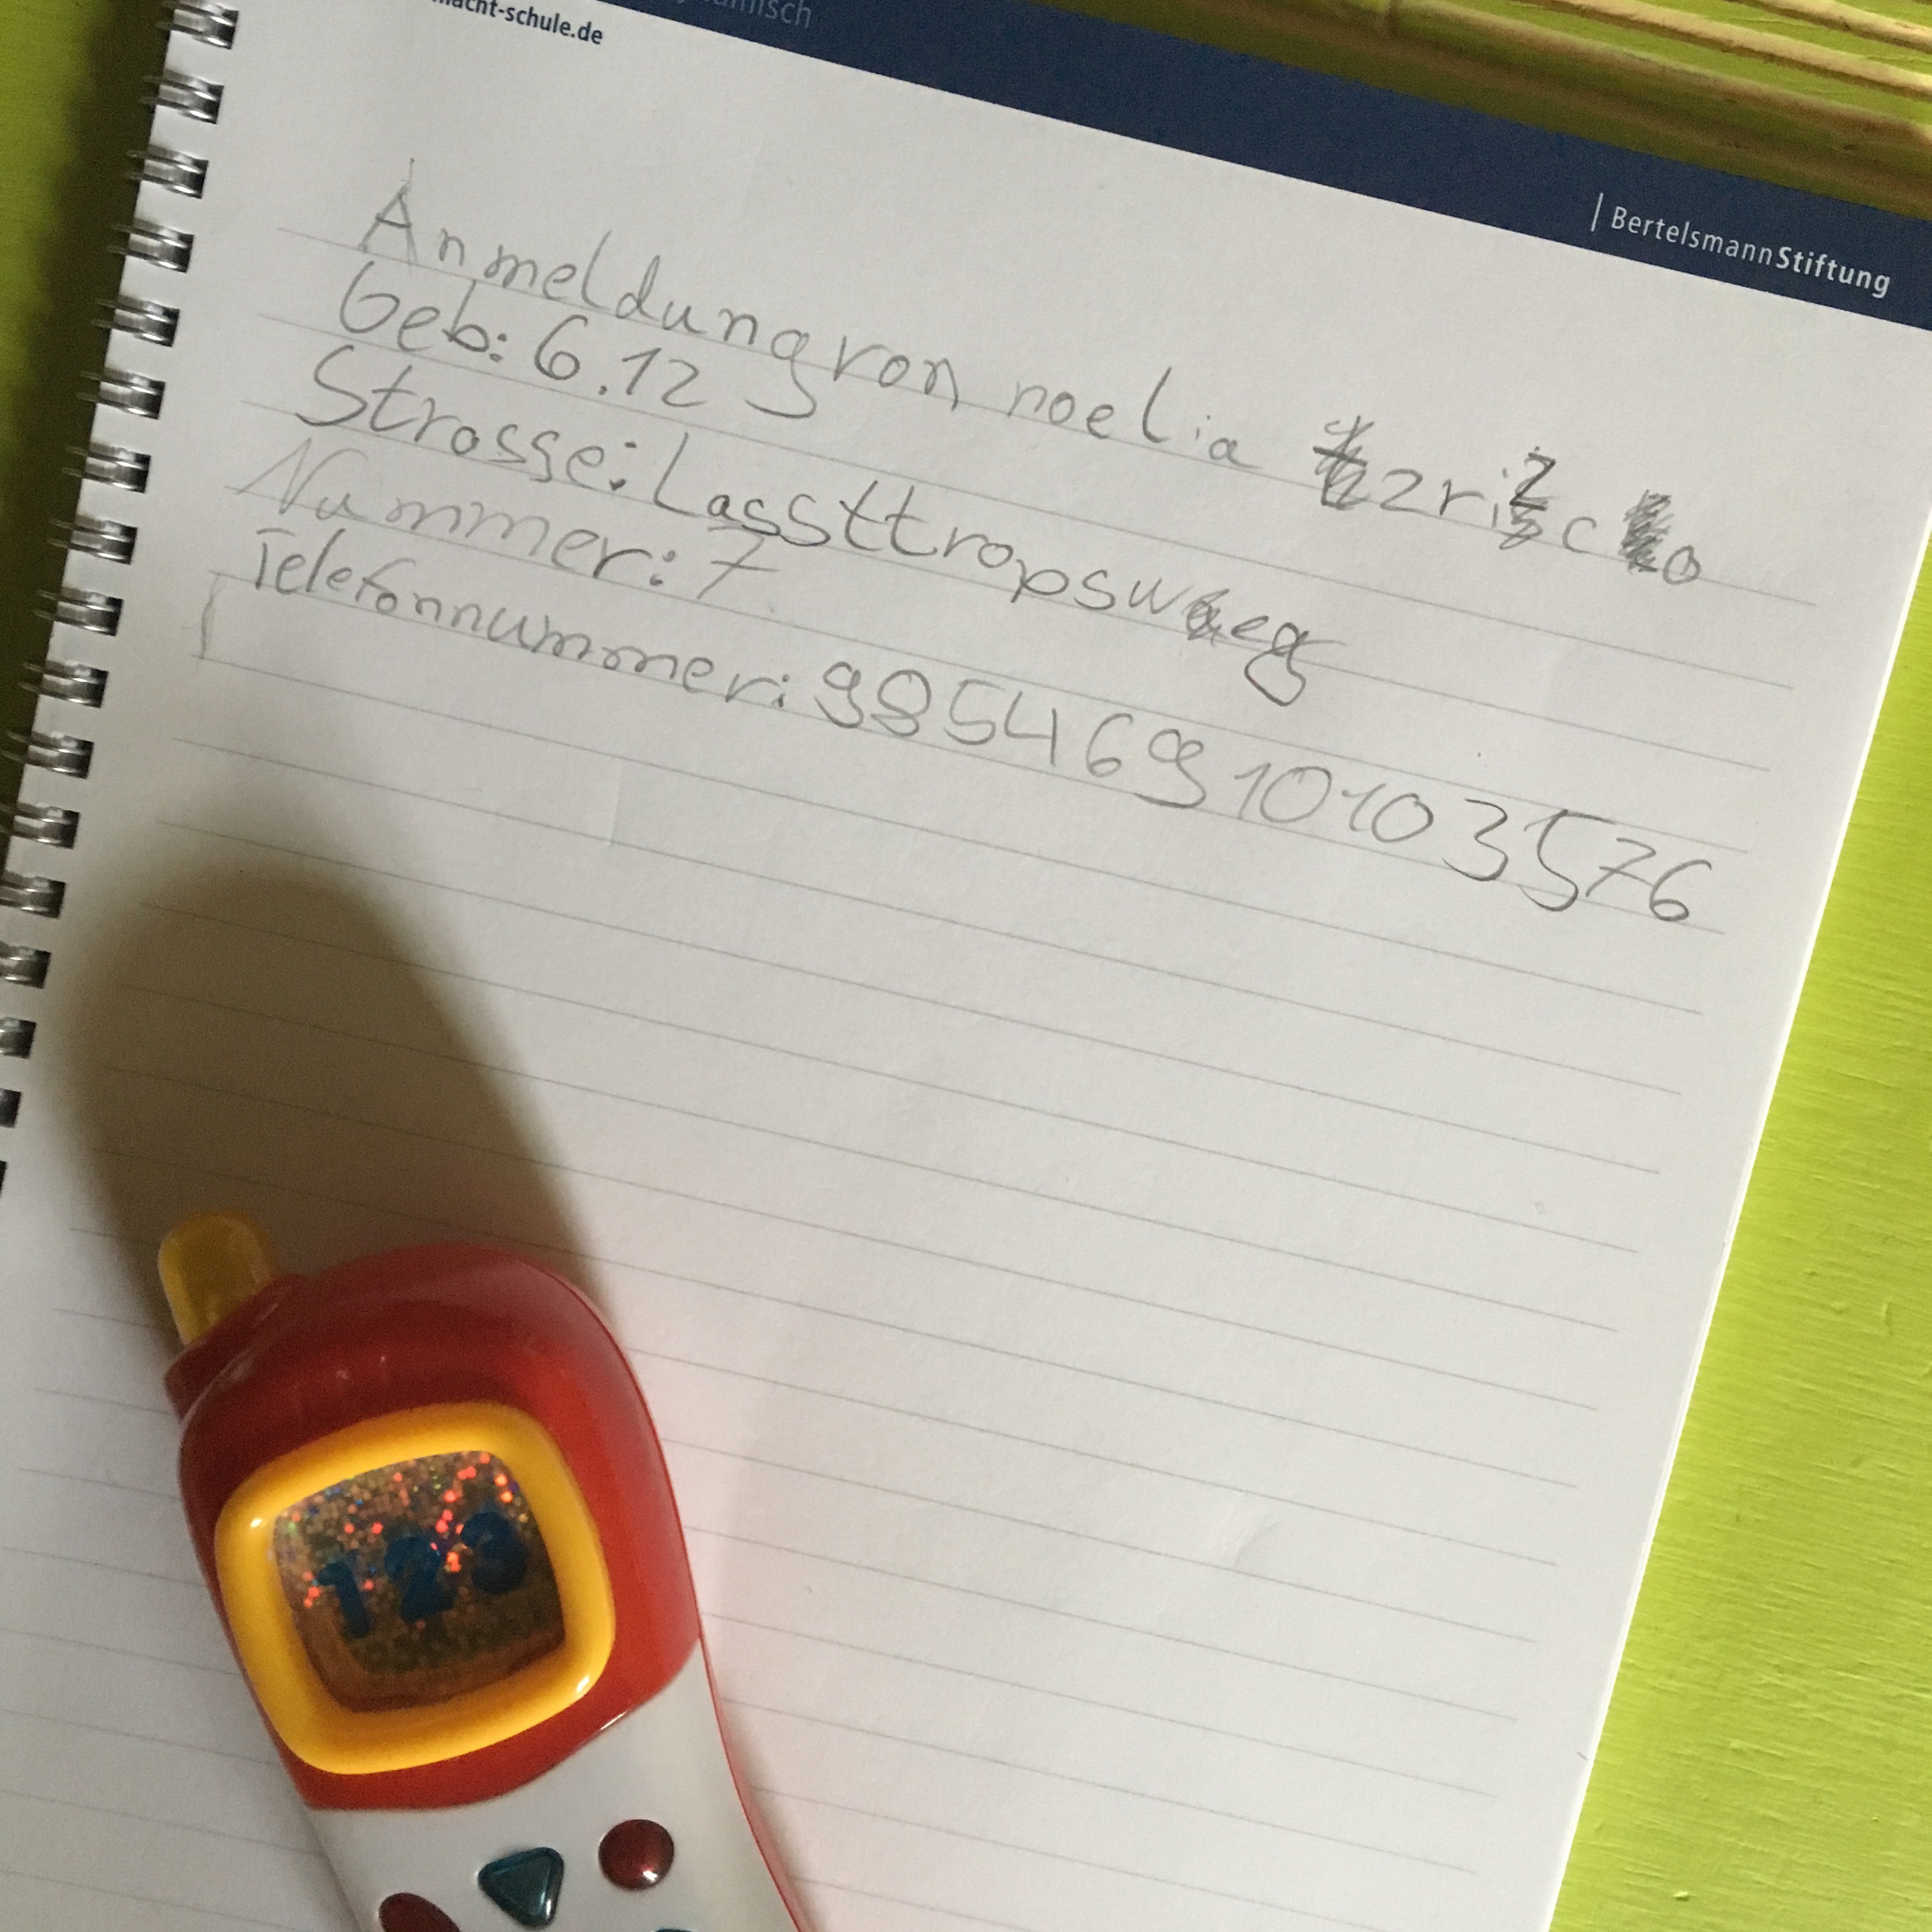 macht-schule.de
Bertelsmann Stiftung
Anmeldung von noelia zrizco
Geb: 6.12
Strasse: Lassttropsweg
Nummer: 7
Telefonnummer: 98546910103576
123